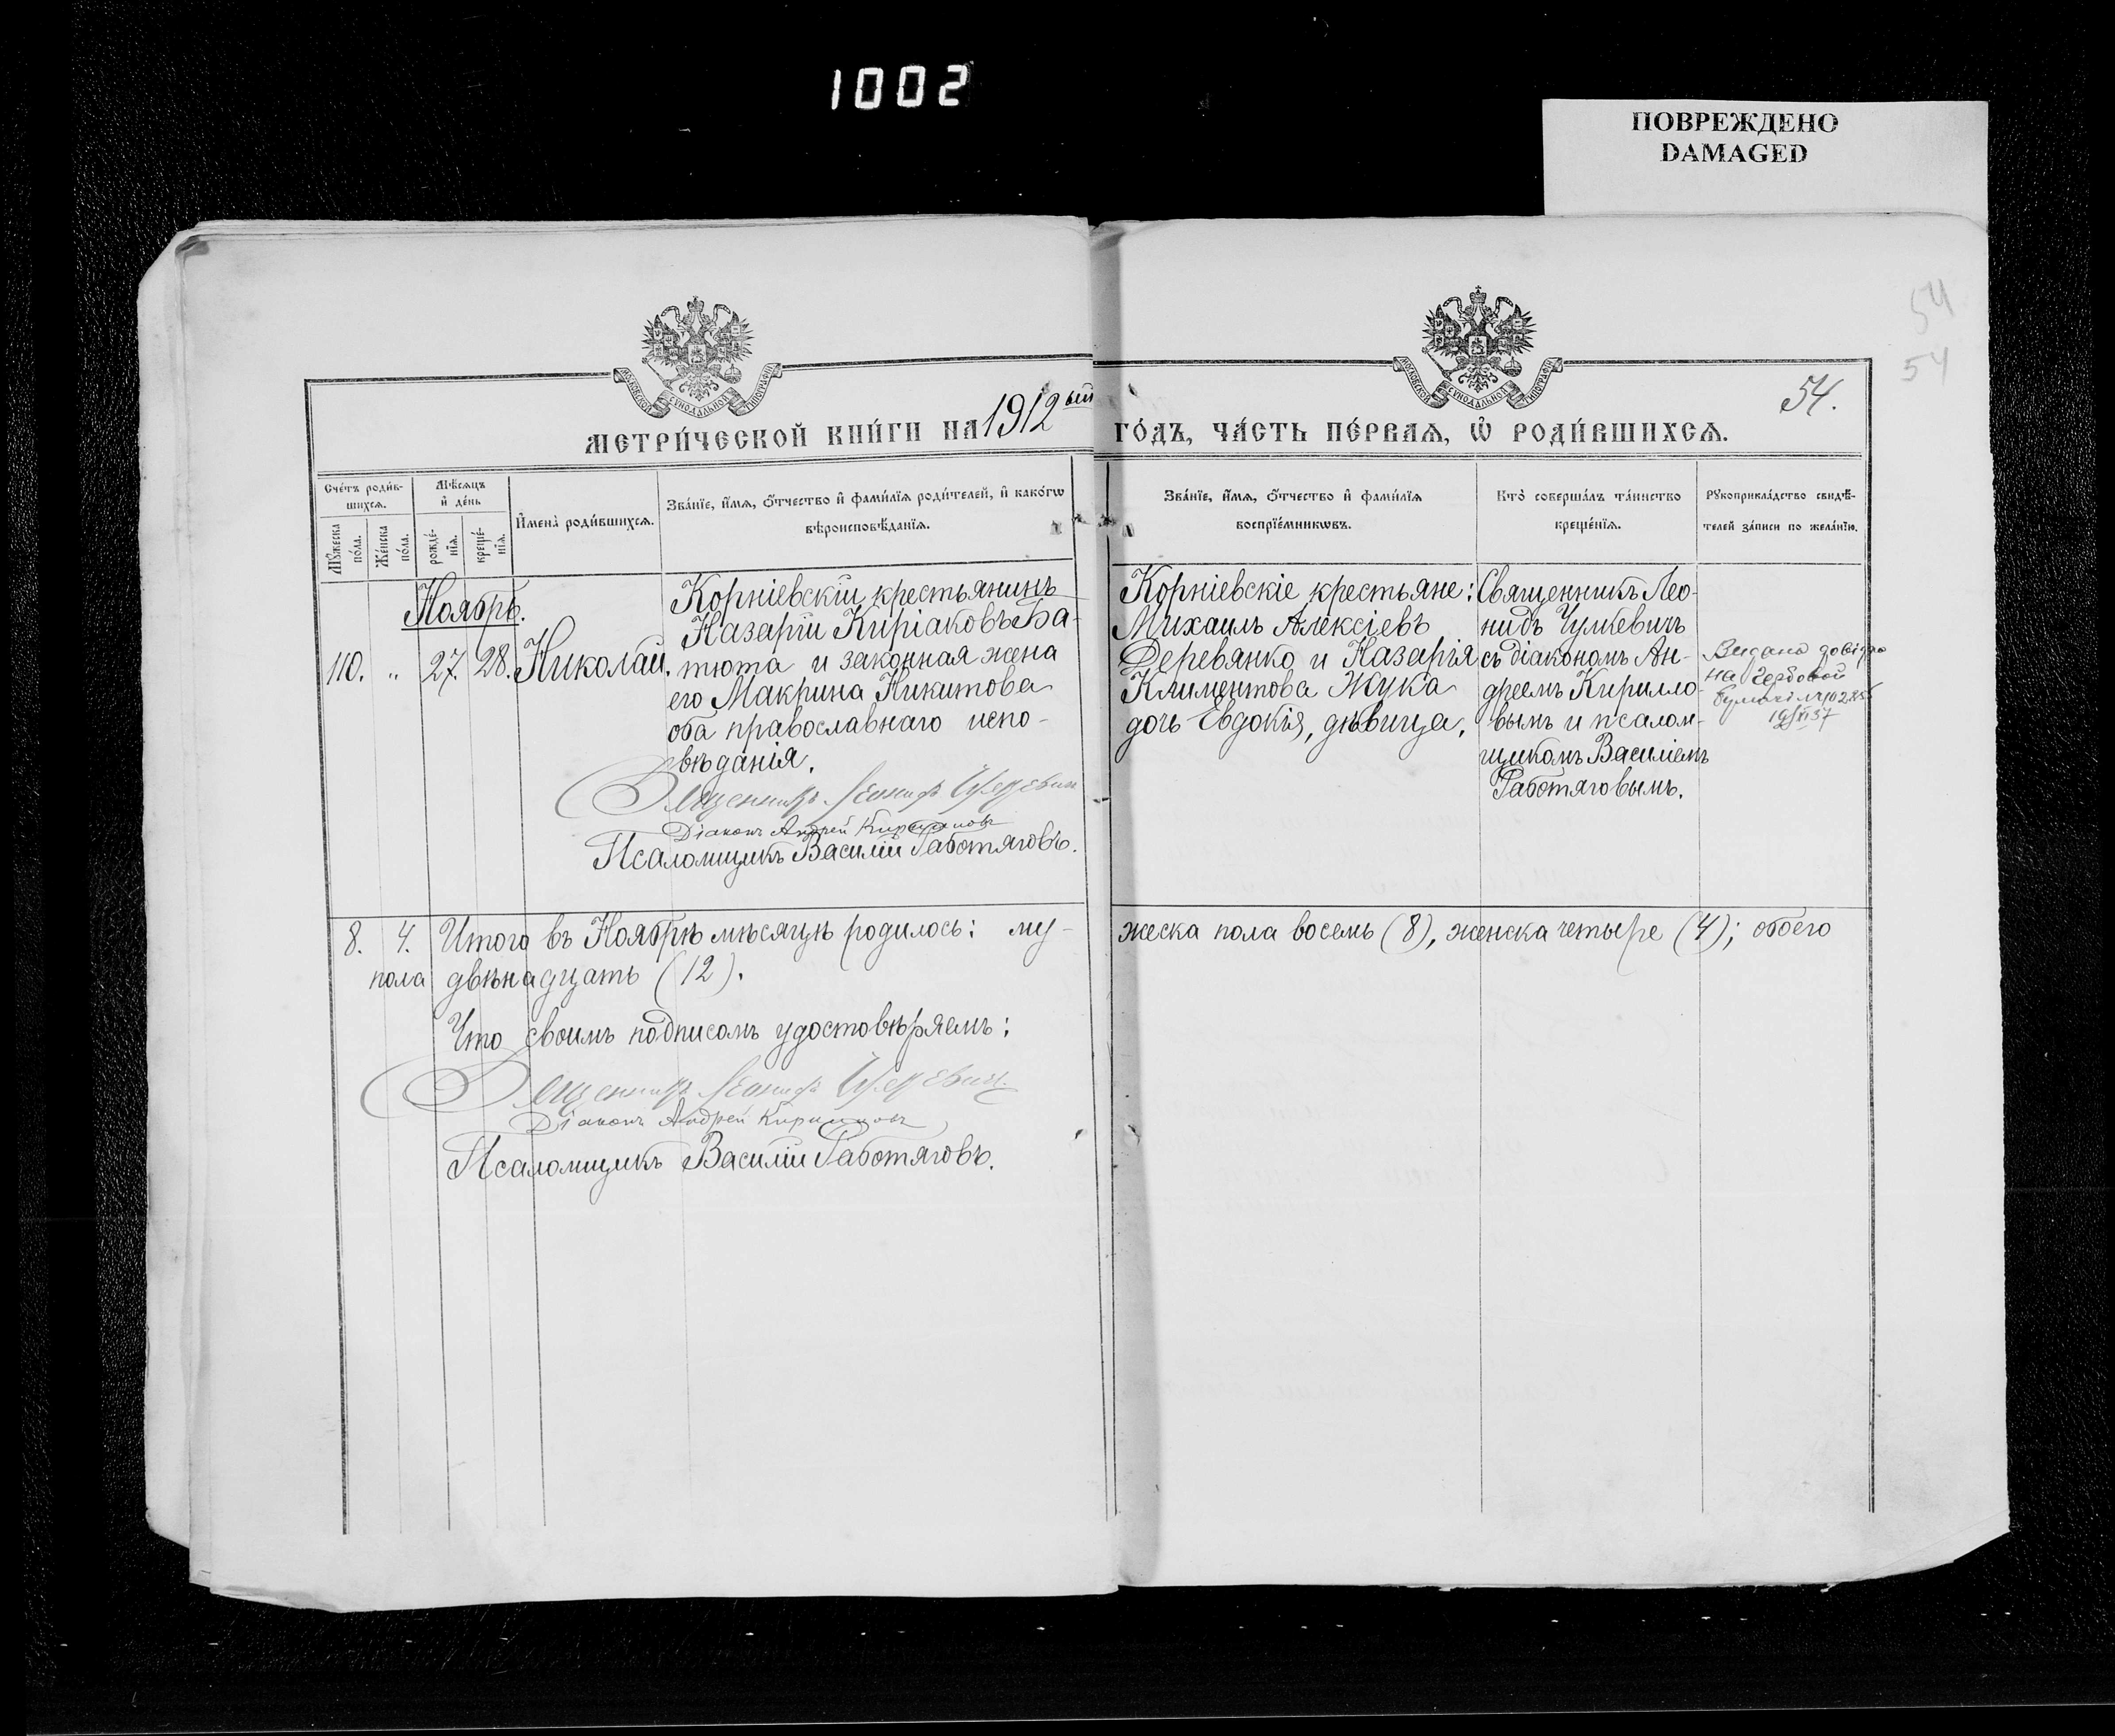 1002
ПОВРЕЖДЕНО
DAMAGED
54
54
54.
МОСКОВСКОЙ СѴНОДАЛЬНОЙ ТИПОГРАФІИ
МОСКОВСКОЙ СѴНОДАЛЬНОЙ ТИПОГРАФІИ
МЕТРИ́ЧЕСКОЙ КНИ́ГИ НА 1912ый ГО́ДЪ, ЧА́СТЬ ПЕ́РВАѦ, Ѡ҆ РОДИ́ВШИХСѦ.
Сче́тъ роди́в-
шихсѧ.
Мꙋ́жеска
по́ла.
Же́нска
по́ла.
Мѣ́сѧцъ
и҆ де́нь
рожде́-
нїѧ.
креще́-
нїѧ.
И҆мена̀ роди́вшихсѧ.
Зва́нїе, и҆́мѧ, ѻ҆́тчество и҆ фами́лїѧ роди́телей, и҆ како́гѡ
вѣроисповѣ́данїѧ.
Зва́нїе, и҆́мѧ, ѻ҆́тчество и҆ фами́лїѧ
воспрїе́мникѡвъ.
Кто̀ соверша́лъ та́инство
креще́нїѧ.
Рꙋкоприкла́дство свидѣ́-
телей за́писи по жела́нїю.
Ноябрь.
110. „ 27. 28. Николай.
Корніевскій крестьянинъ
Назарій Киріаковъ Ба-
тюта и законная жена
его Макрина Никитова
оба православнаго испо-
вѣданія.
Корніевскіе крестьяне:
Михаилъ Алексіевъ
Деревянко и Назарія
Климентова Жука
дочь Евдокія, дѣвица.
Священникъ Лео-
нидъ Чулкевичъ
съ діакономъ Ан-
дреемъ Кирилло-
вымъ и псалом-
щикомъ Василіемъ
Работяговымъ.
Видано довідко
на гербовой
Священникъ Леонидъ
Діаконъ Андрей Кирилловъ
Псаломщикъ Василій Работяговъ.
8. 4. Итого въ Ноябрѣ мѣсяцѣ родилось: му-жеска пола восемь (8), женска четыре (4); обоего
пола двѣнадцать (12).
Что своимъ подписомъ удостовѣряемъ:
Священникъ Леонидъ
Діаконъ Андрей Кирилловъ
Псаломщикъ Василій Работяговъ.